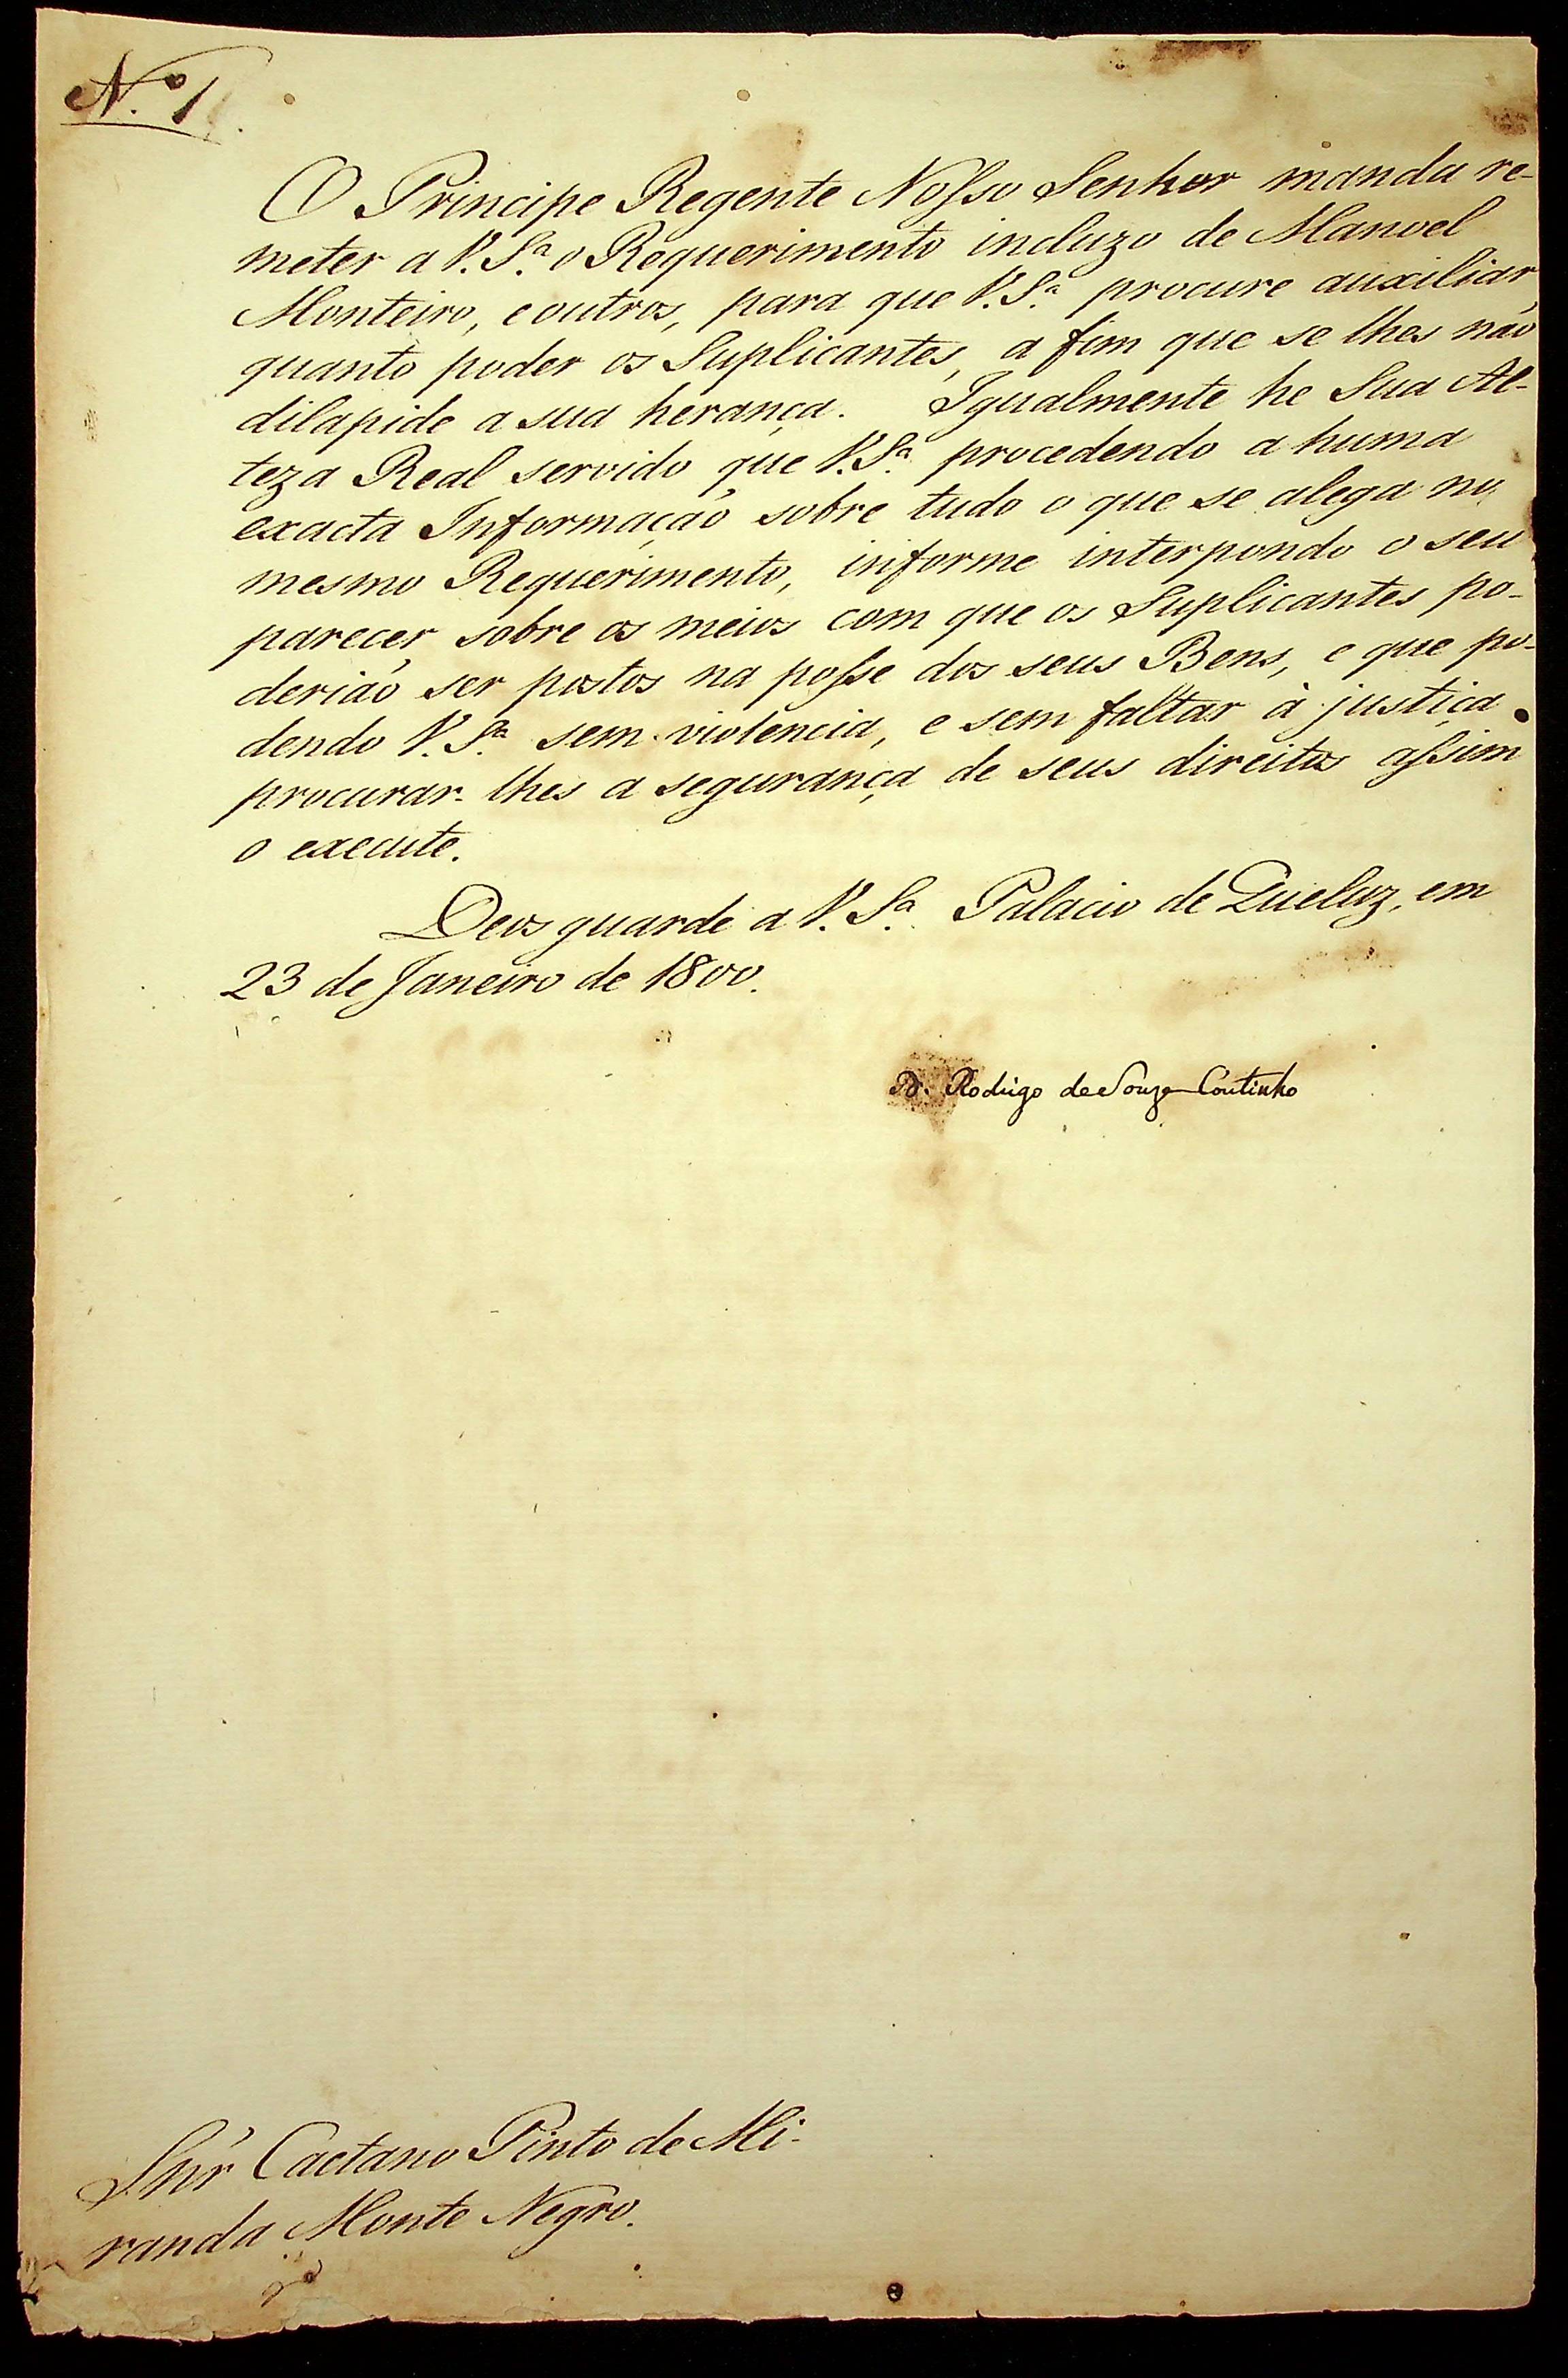 N.º 1
O Principe Regente Nosso Senhor manda re-
meter a V. S.ª o Requerimento incluzo de Manoel
Monteiro, e outros, para que V. S.ª procure auxiliar
quanto poder os Suplicantes, a fim que se lhes não
dilapide a sua herança. Igualmente he Sua Al-
teza Real servido que V. S.ª procedendo a huma
exacta Informação sobre tudo o que se alega no
mesmo Requerimento, informe interpondo o seu
parecer sobre os meios com que os Suplicantes po-
derião ser postos na posse dos seus Bens, e que po-
dendo V. S.ª sem violencia, e sem faltar à justiça
procurar-lhes a segurança de seus direitos assim
o execute.
Deos guarde a V. S.ª Palacio de Queluz, em
23 de Janeiro de 1800.
D. Rodrigo de Souza Coutinho
Snr̃ Caetano Pinto de Mi-
randa Monte Negro.